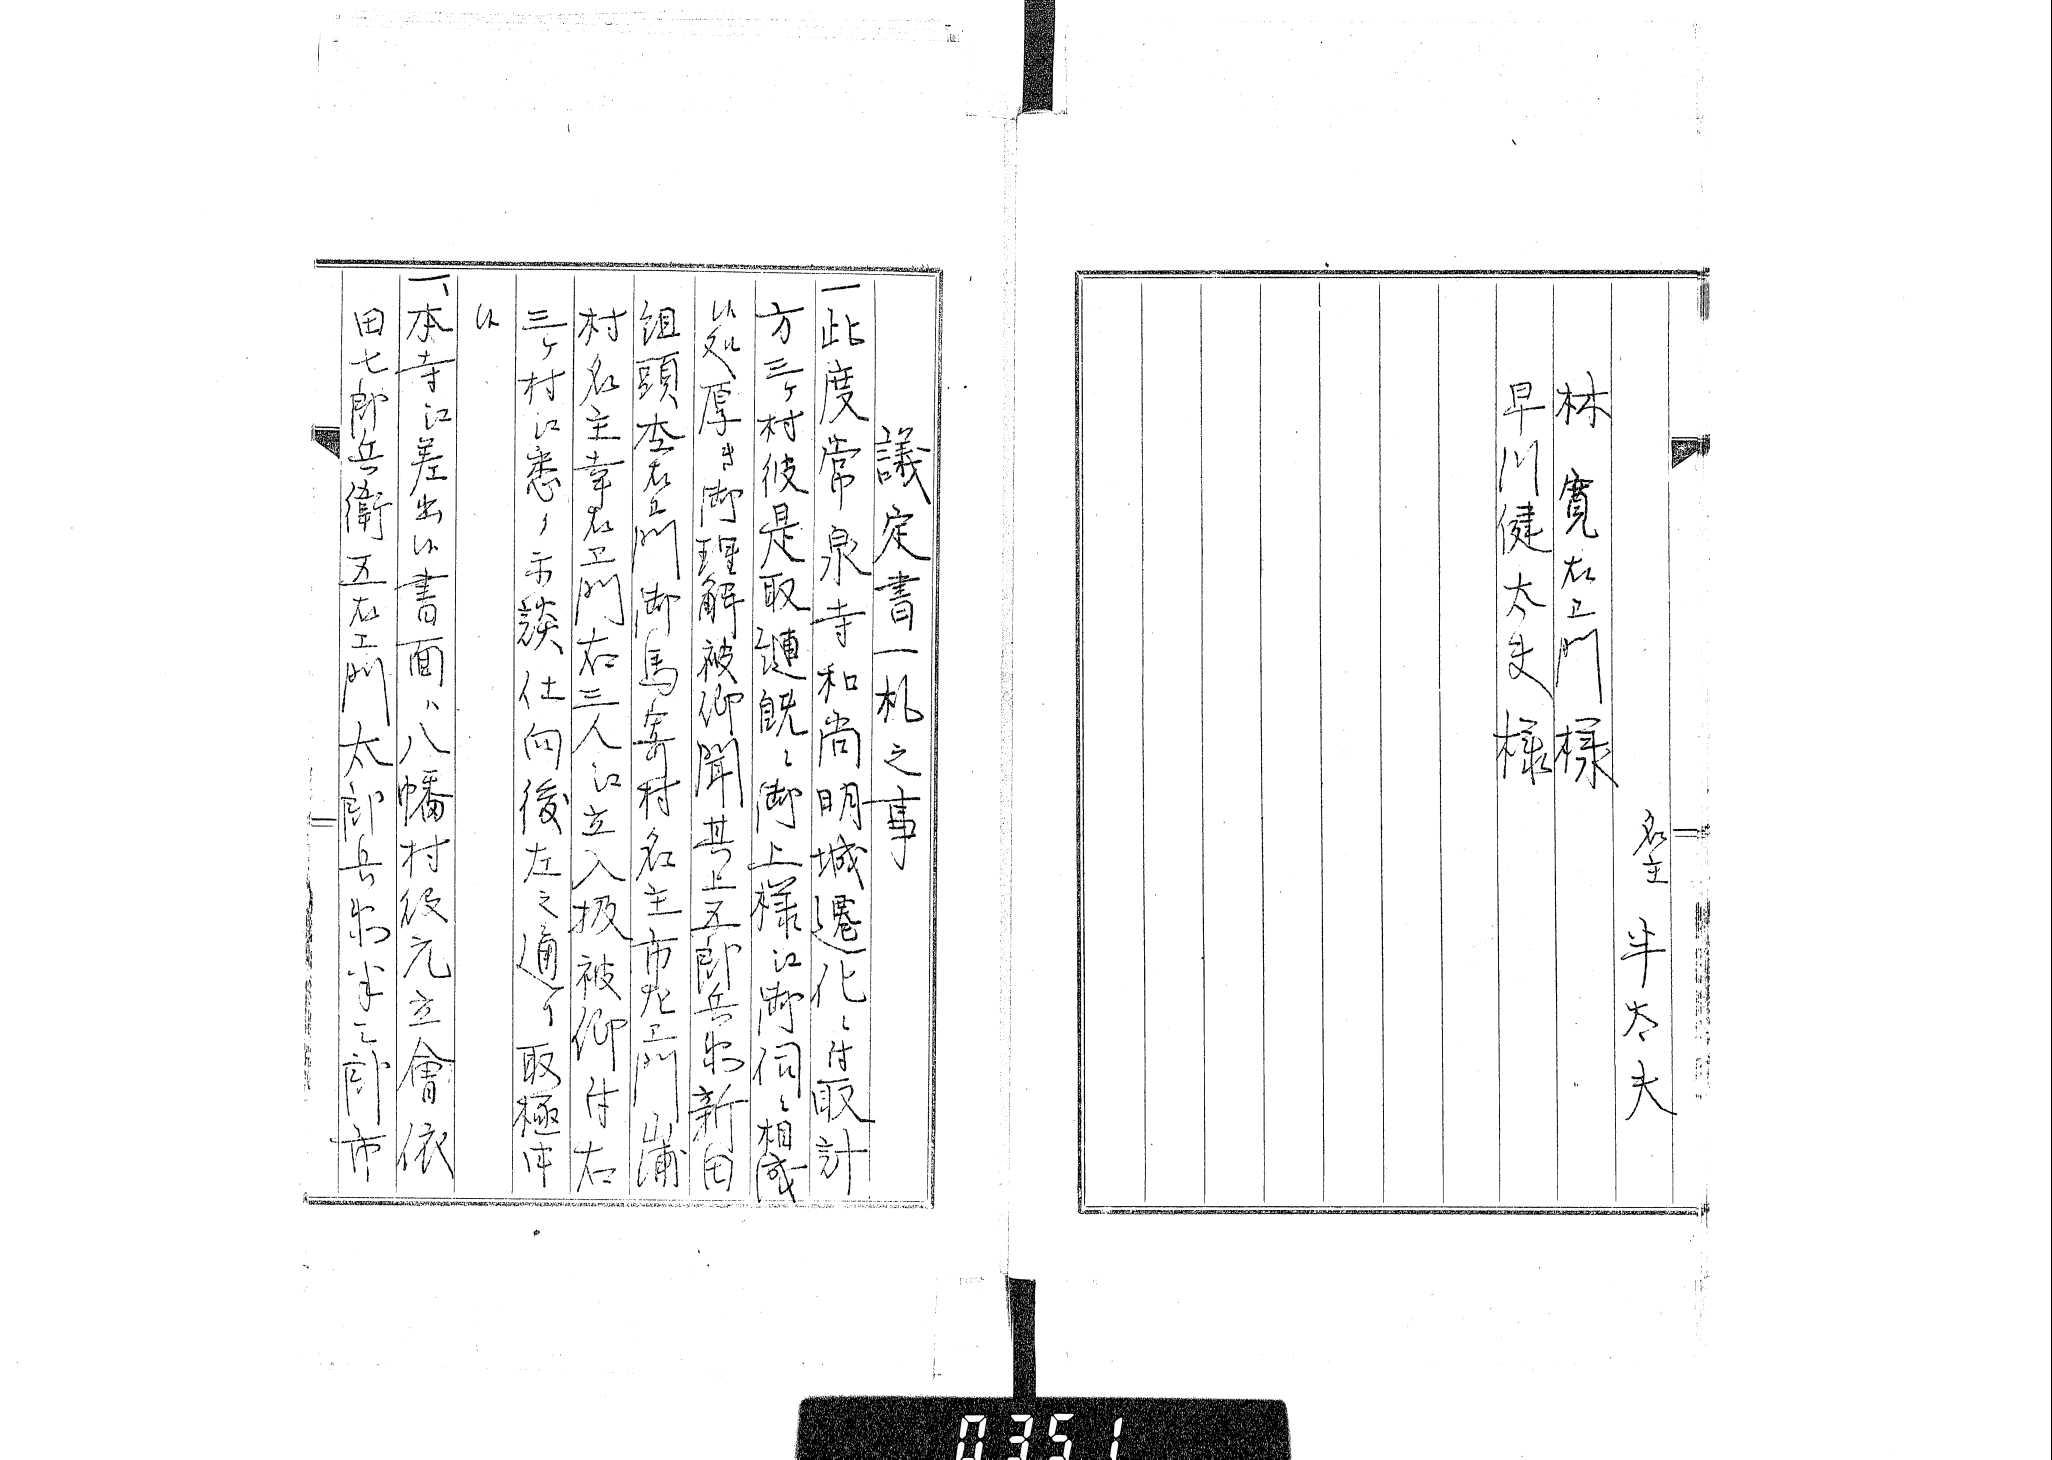 名主　半太夫
林　寛右卫門様
早川健太夫様
議定書一札之事
一此度常泉寺和尚明城遷化ニ付取計
方三ヶ村彼是取縺既ニ御上様江御伺ニ相成
候処厚キ御理解被仰聞其上五郎兵衛新田
組頭杢右卫門御馬寄村名主市左卫門山浦
村名主幸右卫門右三人江立入扱被仰付右
三ヶ村江悉ク示談仕向後左之通リ取極申
候
一、本寺江差出候書面ハ八幡村役元立會依
田七郎兵衛五右卫門太郎兵衛半三郎市
0351